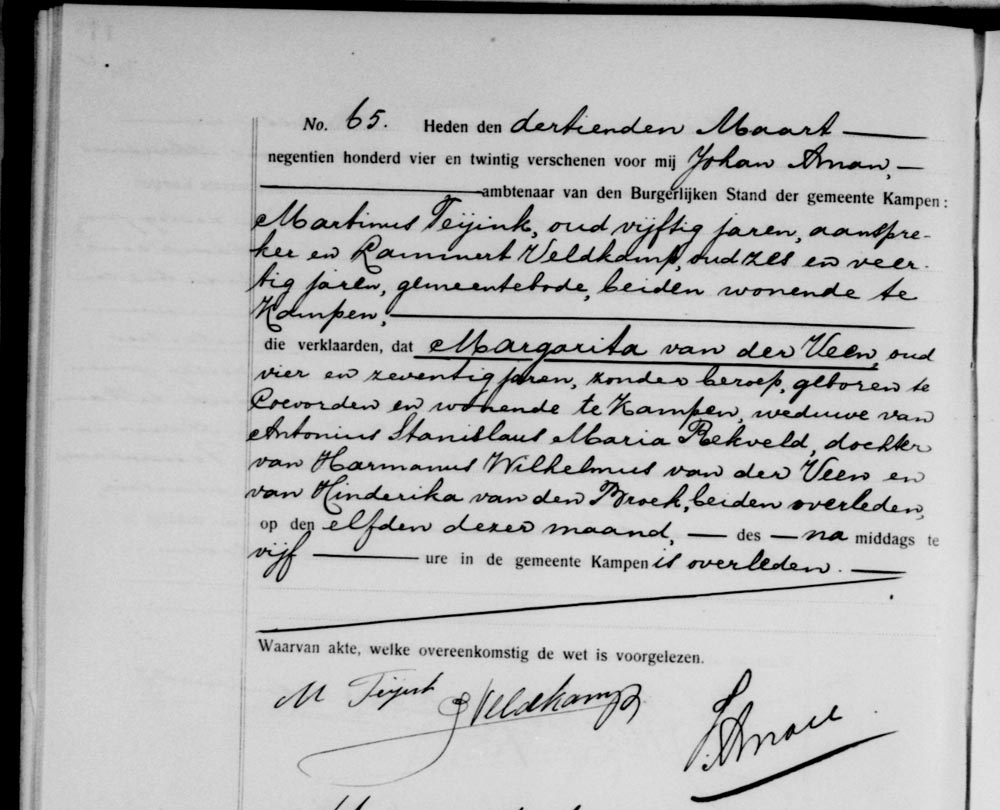 No. 65. Heden den dertienden Maart
negentien honderd vier en twintig verschenen voor mij Johan Aman,
ambtenaar van den Burgerlijken Stand der gemeente Kampen:
Martinus Teijink, oud vijftig jaren, aanspre-
ker en Lammert Veldkamp, oud zes en veer-
tig jaren, gemeentebode, beiden wonende te
Kampen,
die verklaarden, dat Margarita van der Veen, oud
vier en zeventig jaren, zonder beroep, geboren te
Coevorden en wonende te Kampen, weduwe van
Antonius Stanislaus Maria Rekveld, dochter
van Harmanus Wilhelmus van der Veen en
van Hinderika van den Broek, beiden overleden,
op den elfden dezer maand, des na middags te
vijf ure in de gemeente Kampen is overleden.
Waarvan akte, welke overeenkomstig de wet is voorgelezen.
M Teijink Veldkamp
J. Aman